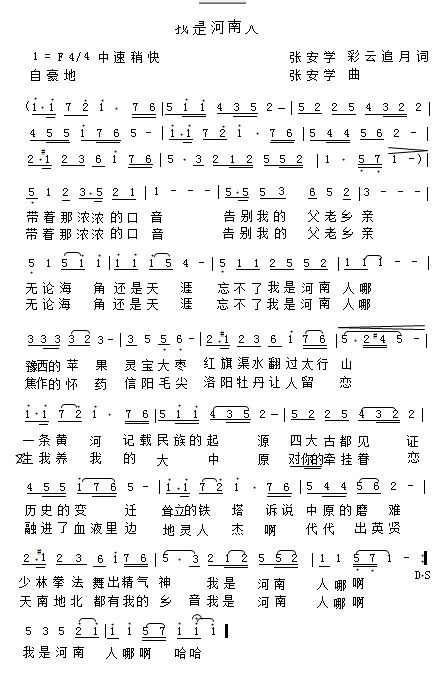 我是河南人
1=F 4/4 中速稍快 张安学 彩云追月词
自豪地 张安学 曲
(i·i 7 2 i · 7 6 | 5 i i 4 3 5 2 - | 5 2 2 5 4 3 2 2 |
4 5 5 i 5 7 6 5 - | i·i 7 2 i · 7 6 | 5 4 4 5 6 2 - |
2·#1 2 3 6 i 7 6 | 5 · 3 2 1 2 5 5 2 | 1 · 5 7 1 -) |
5 1 2 3·5 2 1 | 1 - - - | 5·5 5 3 6 5 2 | 3 - - - |
带着那浓浓的口 音 告别我的 父老乡亲
带着那浓浓的口 音 告别我的 父老乡亲
5 1 5 i i | i i i 5 4 - | 5 1 1 2 5 5 2 | 1 i i - |
无论海 角还是天 涯 忘不了我是河南 人哪
无论海 角还是天 涯 忘不了我是河南 人哪
3 3 3 3 2 3 - | 3 5 5 6 - | 2·#1 2 3 6 i 7 6 | 5·2 #4 5 - |
豫西的 苹 果 灵宝大枣 红旗渠水翻过太行 山
焦作的 怀 药 信阳毛尖 洛阳牡丹让人留 恋
i·i 7 2 i · 7 6 | 5 i i 4 3 5 2 - | 5 2 2 5 4 3 2 2 |
一条黄 河 记载民族的起 源 四大古都见 证
生我养 我 的 大 中 原 对你的牵挂眷 恋
4 5 5 i 5 7 6 5 - | i·i 7 2 i · 7 6 | 5 4 4 5 6 2 - |
历史的变 迁 耸立的铁 塔 诉说 中原的磨 难
融进了血液里边 地灵人 杰 啊 代代 出英贤
2·#1 2 3 6 i 7 6 | 5 · 3 2 1 2 5 5 2 | 1 1 5 7 1 - :|
D·S
少林拳法 舞出精气 神 我是 河南 人哪啊
天南地北 都有我的 乡 音我是 河南 人哪啊
5 3 5 2 i | i i 5 7 i i |
我是河南 人哪啊 哈哈